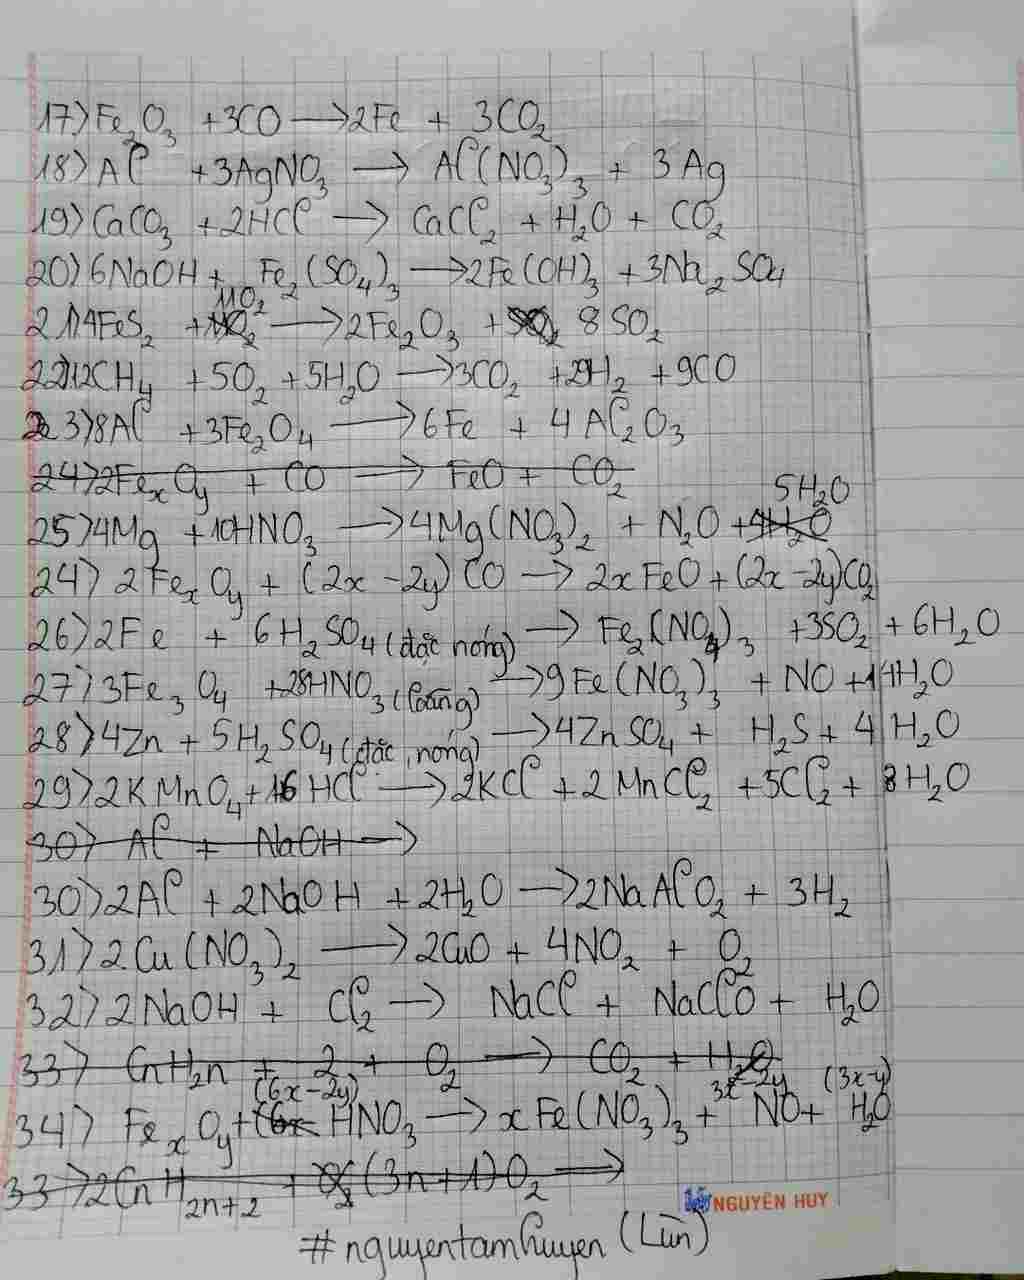 17) Fe₂O₃ + 3CO → 2Fe + 3CO₂
18) Al + 3AgNO₃ → Al(NO₃)₃ + 3Ag
19) CaCO₃ + 2HCl → CaCl₂ + H₂O + CO₂
20) 6NaOH + Fe₂(SO₄)₃ → 2Fe(OH)₃ + 3Na₂SO₄
21) 4FeS₂ + 11O₂ → 2Fe₂O₃ + 8SO₂
22) 12CH₄ + 5O₂ + 5H₂O → 3CO₂ + 29H₂ + 9CO
23) 8Al + 3Fe₂O₄ → 6Fe + 4Al₂O₃
24) 2FeₓOy + CO → FeO + CO₂
25) 4Mg + 10HNO₃ → 4Mg(NO₃)₂ + N₂O + 5H₂O
24) 2FeₓOy + (2x-2y)CO → 2xFeO + (2x-2y)CO₂
26) 2Fe + 6H₂SO₄ (đặc nóng) → Fe₂(NO₄)₃ + 3SO₂ + 6H₂O
27) 3Fe₃O₄ + 28HNO₃ (loãng) → 9Fe(NO₃)₃ + NO + 14H₂O
28) 4Zn + 5H₂SO₄ (đặc, nóng) → 4ZnSO₄ + H₂S + 4H₂O
29) 2KMnO₄ + 16HCl → 2KCl + 2MnCl₂ + 5Cl₂ + 8H₂O
30) Al + NaOH →
30) 2Al + 2NaOH + 2H₂O → 2NaAlO₂ + 3H₂
31) 2Cu(NO₃)₂ → 2CuO + 4NO₂ + O₂
32) 2NaOH + Cl₂ → NaCl + NaClO + H₂O
33) CnH₂n + 2 + O₂ → CO₂ + H₂O
34) FeₓOy + (6x-2y) HNO₃ → xFe(NO₃)₃ + 3x-2y NO + (3x-y) H₂O
33) 2CnH₂n+2 + (3n+1)O₂ →
NGUYÊN HUY
#nguyentamhuyen (Lùn)